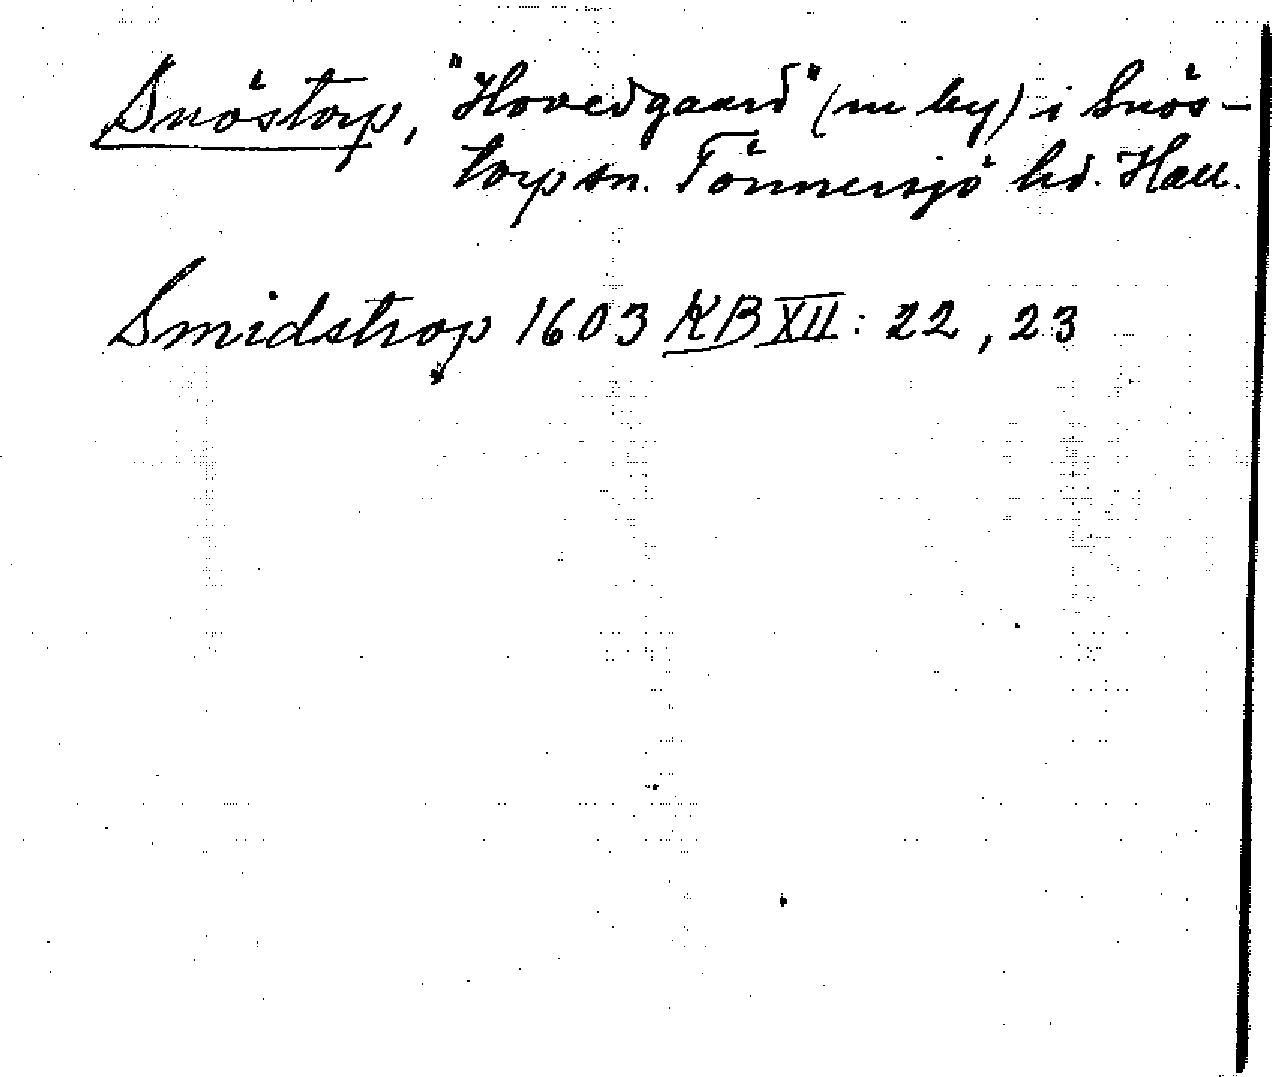 Snöstorp, "Hovedgaard" (nu by) i Snös-
torp sn. Tönnersjö hd. Hall.
Smidstrop 1603 KB XII: 22, 23